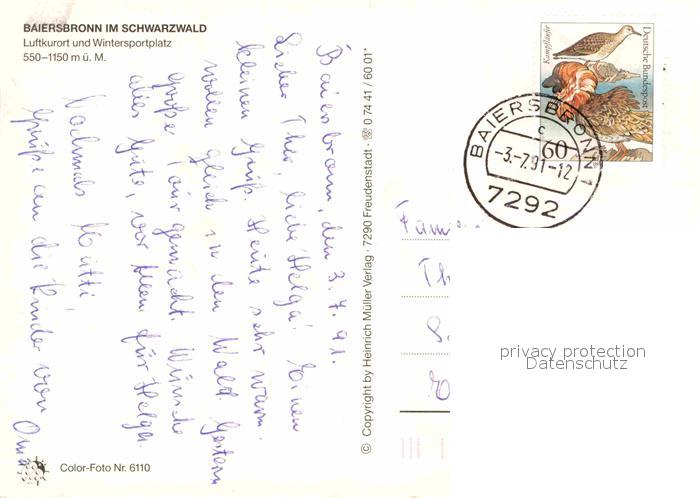 BAIERSBRONN IM SCHWARZWALD
Luftkurort und Wintersportplatz
550–1150 m ü. M.
Baiersbronn, den 3.7.91.
Lieber Theo, liebe Helga! Einen
kleinen Gruß. Heute sehr warm.
wollen gleich in den Wald. Gestern
große Tour gemacht. Wünsche
alles Gute, vor allem für Helga.
Nochmals Mutti,
Grüße an die Kinder von Oma.
Color-Foto Nr. 6110
© Copyright by Heinrich Müller Verlag · 7290 Freudenstadt · ☏ 0 74 41 / 60 01*
Kampfläufer
Deutsche Bundespost
60
BAIERSBRONN 1
c
-3.-7.91-12
7292
Fam
Th
privacy protection
Datenschutz